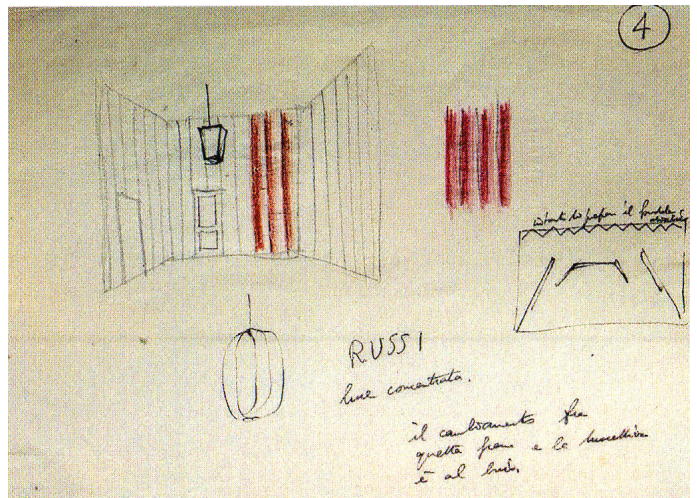 4
il fondale
RUSSI
luce concentrata.
il cambiamento fra
questa e la
è al buio.